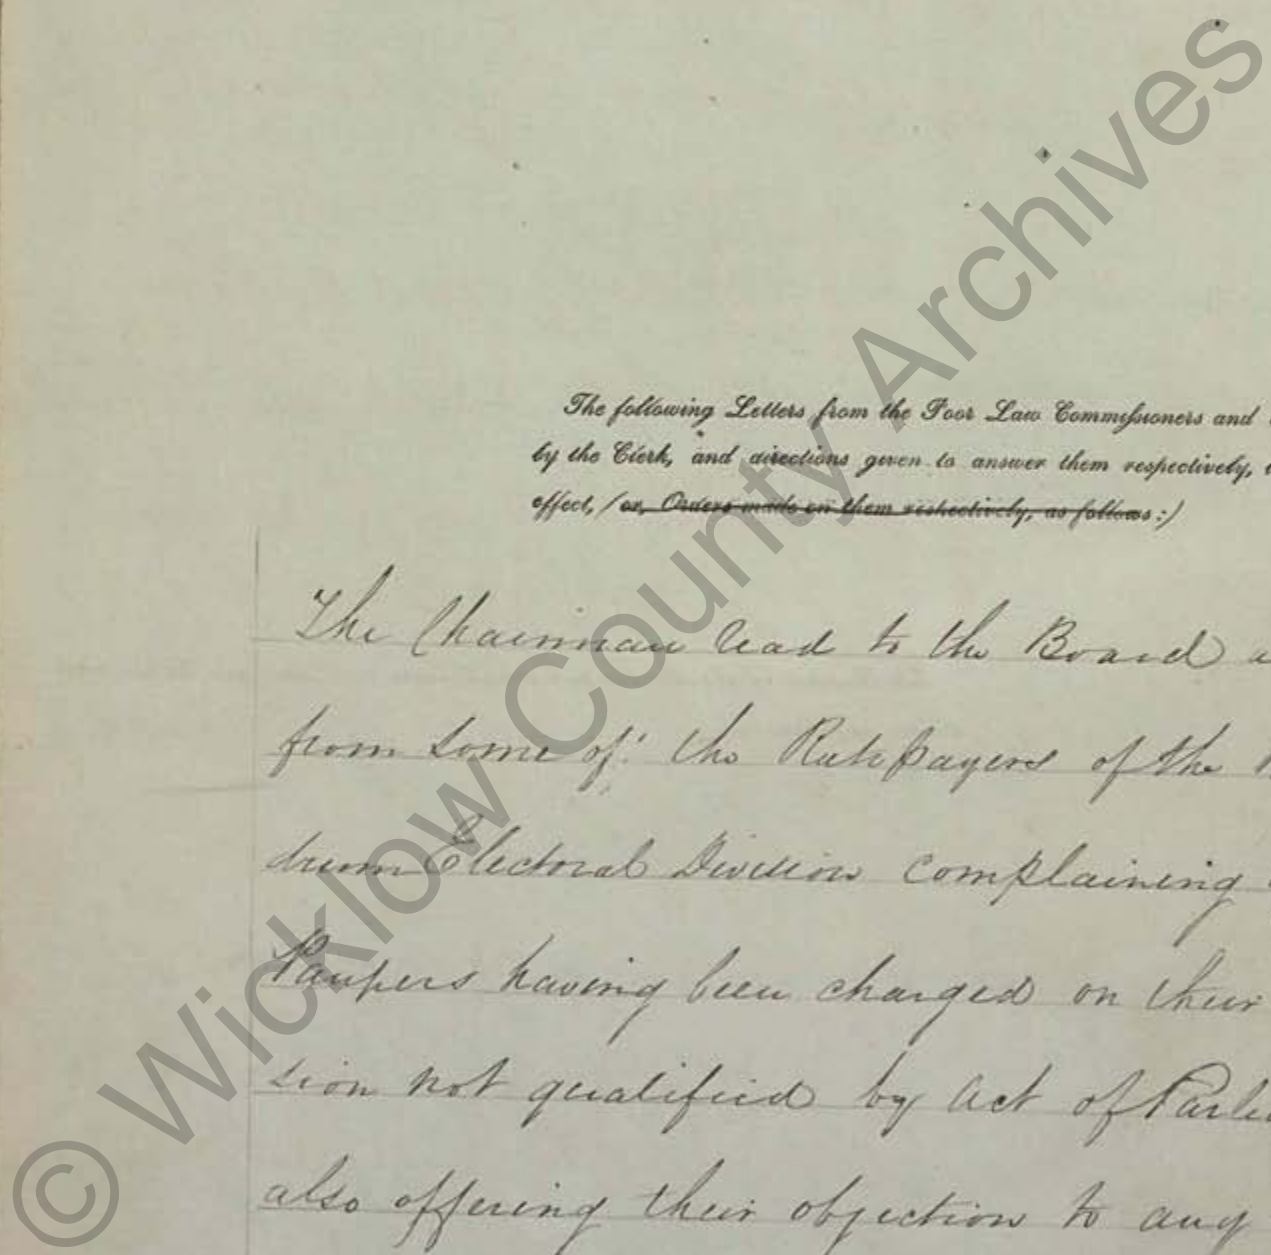 The following Letters from the Poor Law Commissioners and
by the Clerk, and directions given to answer them respectively,
effect, (or, Orders made on them respectively, as follows:)
The Chairman read to the Board a
from some of the Ratepayers of the
drum Electoral Division complaining
Paupers having been charged on their
sion not qualified by Act of Parli
also offering their objection to any
© Wicklow County Archives